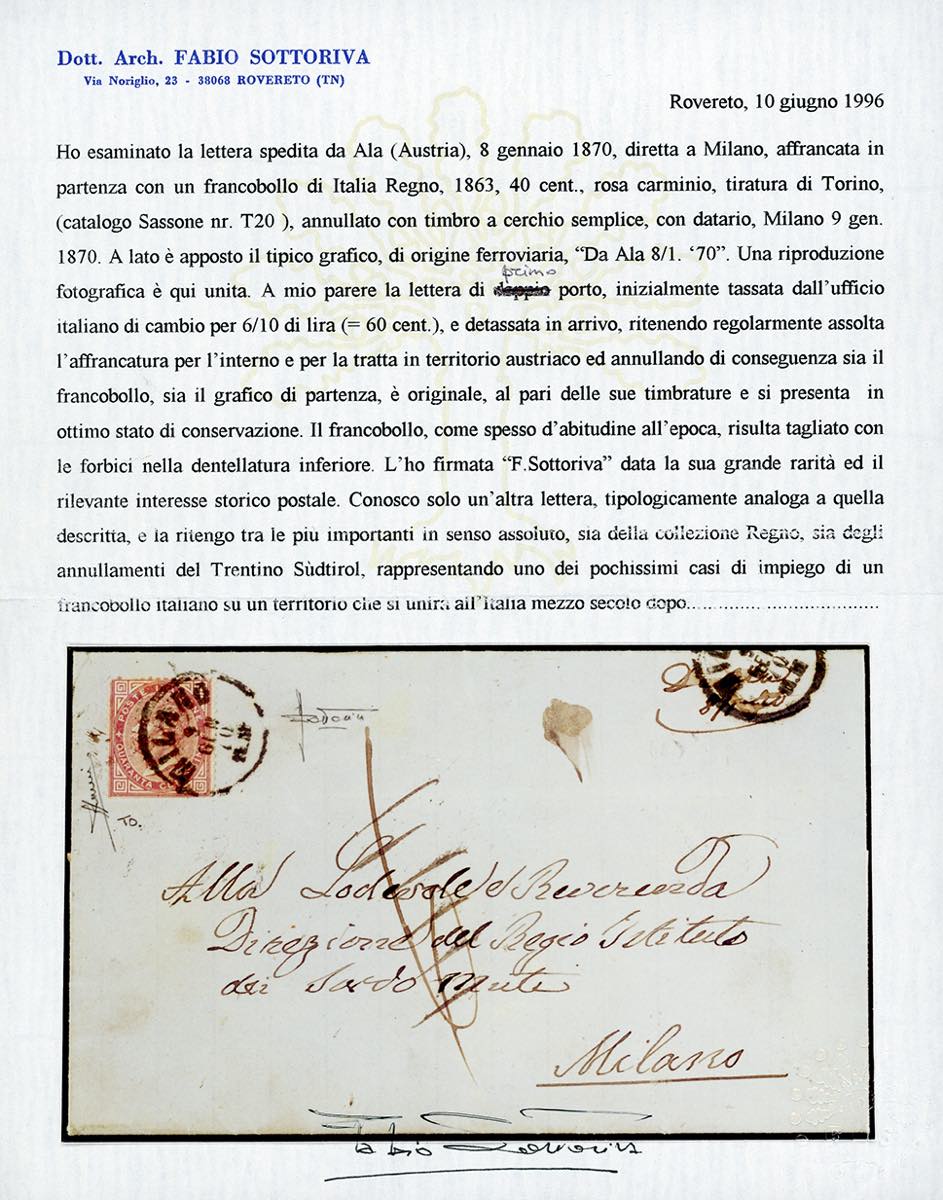 Dott. Arch. FABIO SOTTORIVA
Via Noriglio, 23 - 38068 ROVERETO (TN)
Rovereto, 10 giugno 1996
Ho esaminato la lettera spedita da Ala (Austria), 8 gennaio 1870, diretta a Milano, affrancata in
partenza con un francobollo di Italia Regno, 1863, 40 cent., rosa carminio, tiratura di Torino,
(catalogo Sassone nr. T20 ), annullato con timbro a cerchio semplice, con datario, Milano 9 gen.
1870. A lato è apposto il tipico grafico, di origine ferroviaria, “Da Ala 8/1. ‘70”. Una riproduzione
primo
fotografica è qui unita. A mio parere la lettera di doppio porto, inizialmente tassata dall’ufficio
italiano di cambio per 6/10 di lira (= 60 cent.), e detassata in arrivo, ritenendo regolarmente assolta
l’affrancatura per l’interno e per la tratta in territorio austriaco ed annullando di conseguenza sia il
francobollo, sia il grafico di partenza, è originale, al pari delle sue timbrature e si presenta in
ottimo stato di conservazione. Il francobollo, come spesso d’abitudine all’epoca, risulta tagliato con
le forbici nella dentellatura inferiore. L’ho firmata “F.Sottoriva” data la sua grande rarità ed il
rilevante interesse storico postale. Conosco solo un’altra lettera, tipologicamente analoga a quella
descritta, e la ritengo tra le più importanti in senso assoluto, sia della collezione Regno, sia degli
annullamenti del Trentino Sùdtirol, rappresentando uno dei pochissimi casi di impiego di un
francobollo italiano su un territorio che si unirà all’Italia mezzo secolo dopo.............. ......................
POSTE
QUARANTA
MILANO
9
GEN
70
FSottoriva
8/1
TO.
Alla Lodevole e Reverenda
Direzione del Regio Istituto
dei Sordo Muti
Milano
Fabio Sottoriva